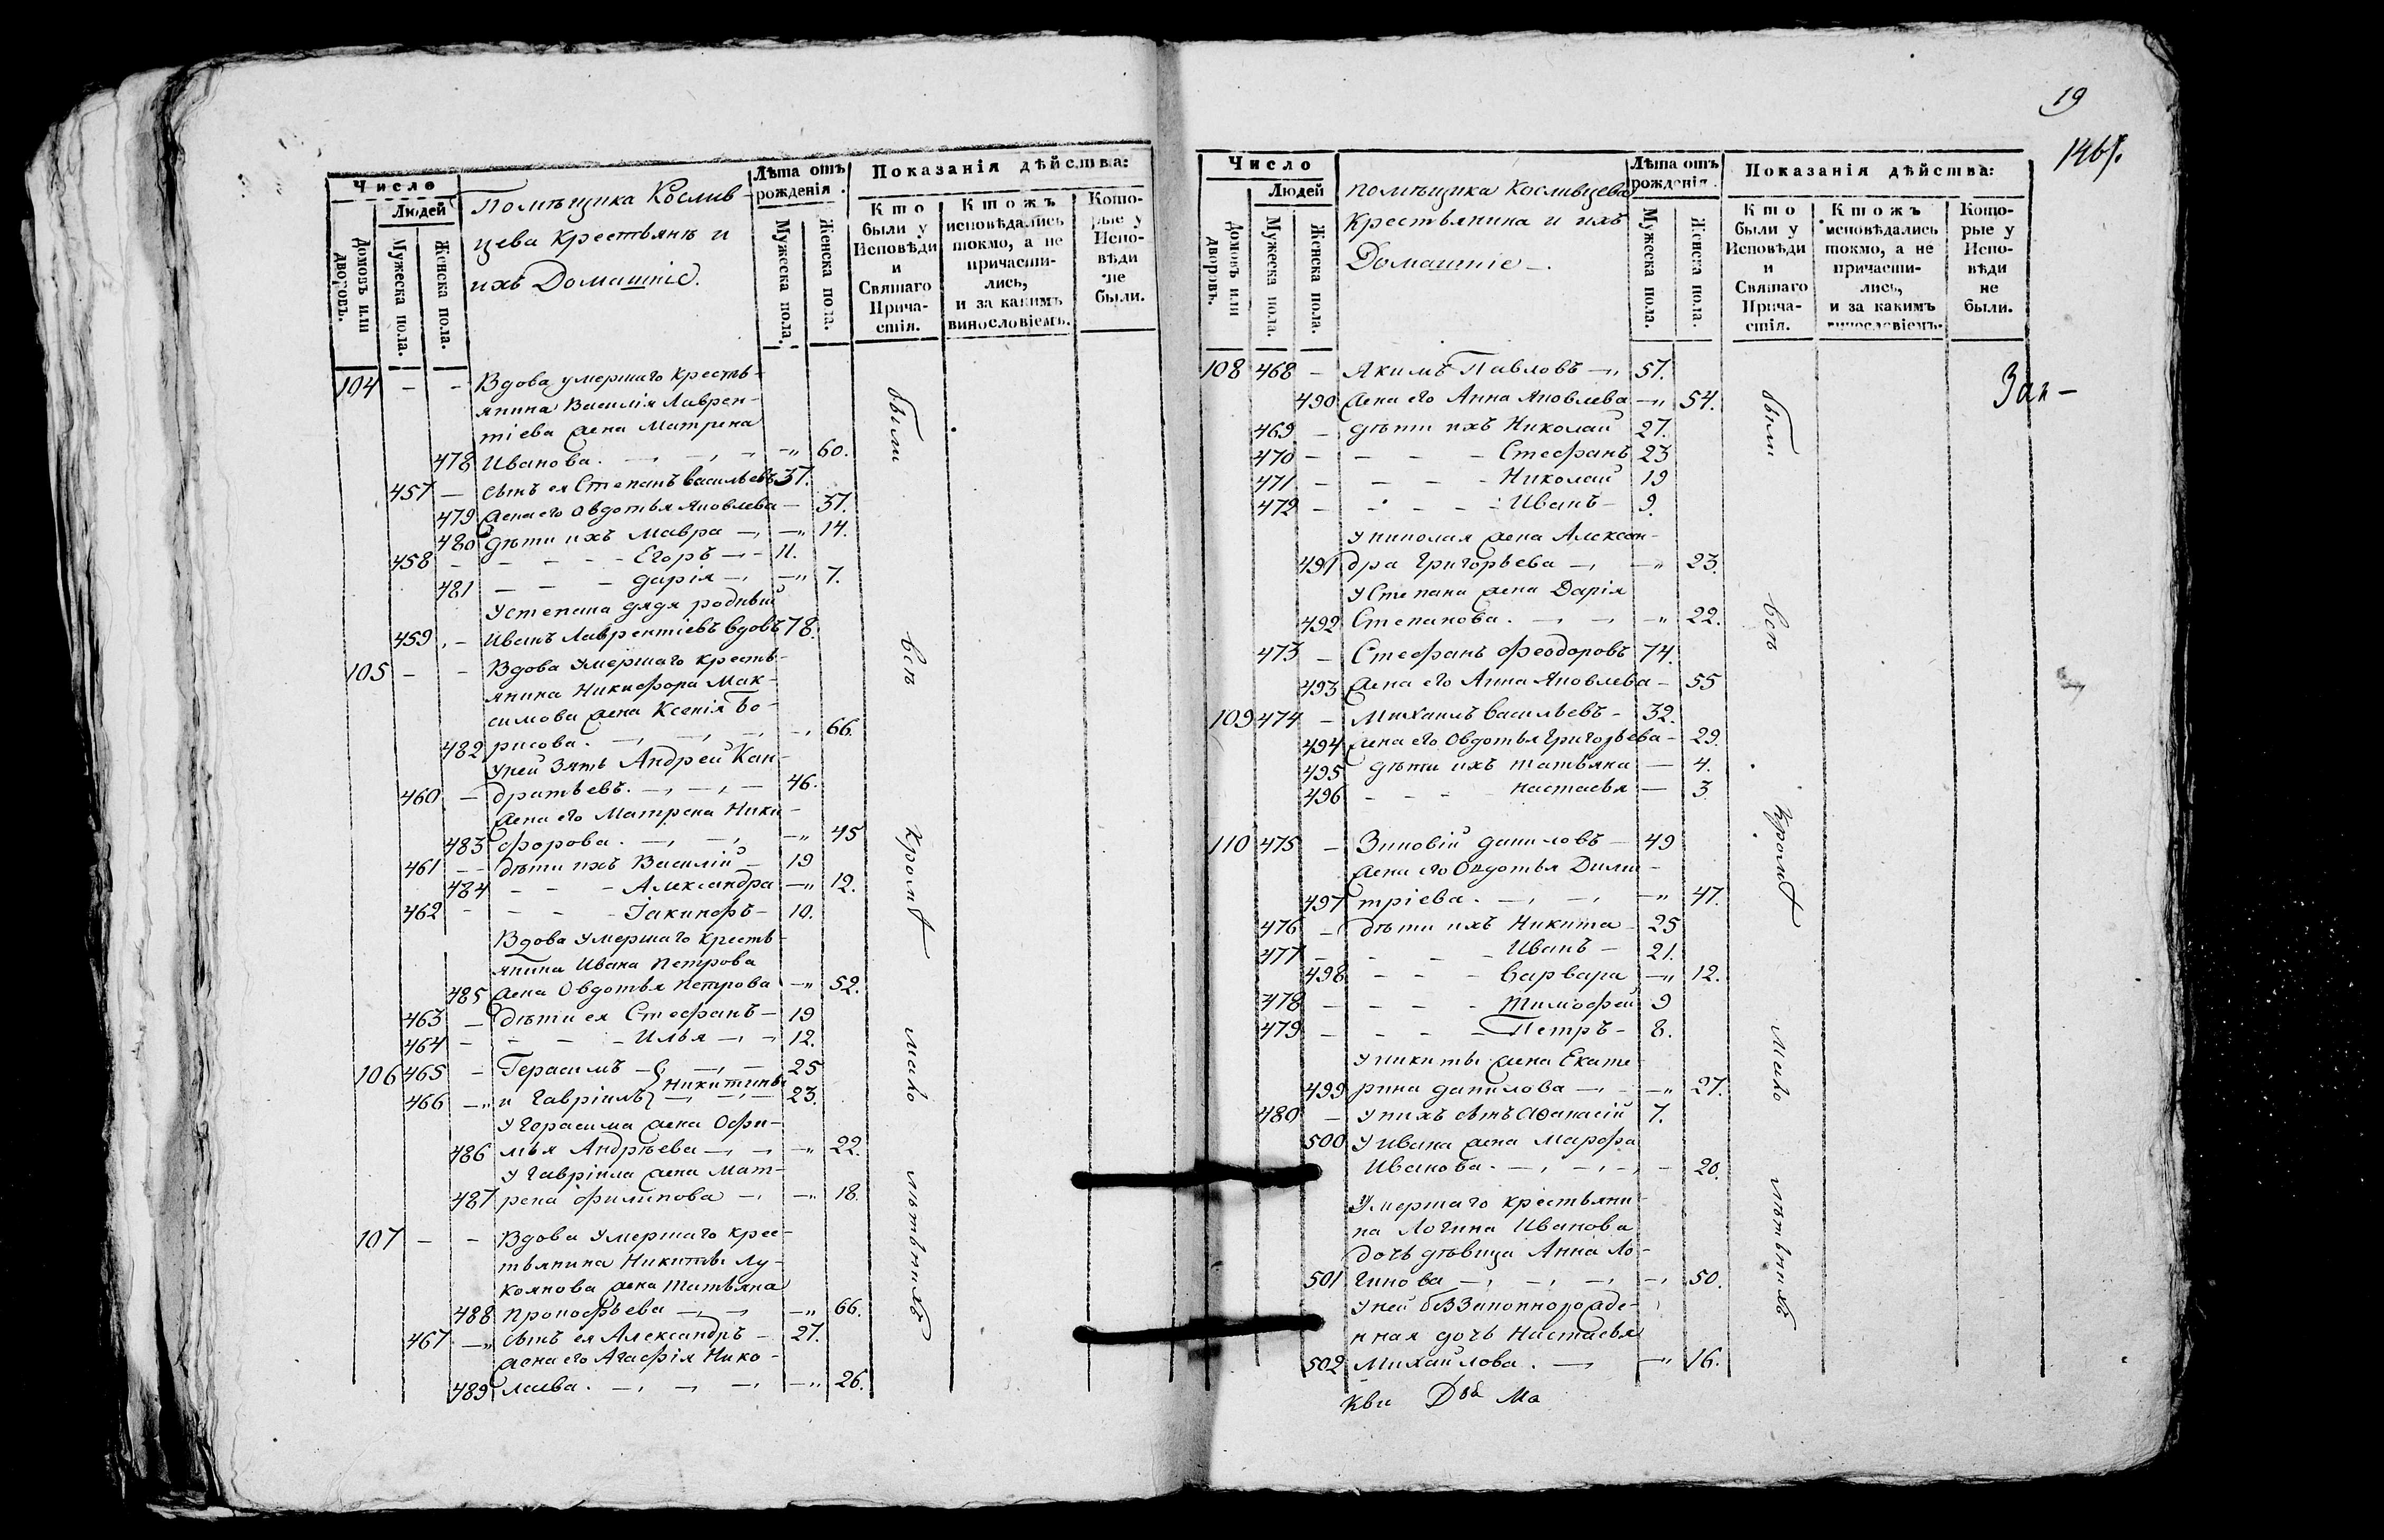 Число
Людей
Домовъ или дворовъ.
Мужеска пола.
Женска пола.
Помѣщика Кослив-
цева крестьянъ и
ихъ Домашніе.
Лѣта отъ рожденія.
Мужеска пола.
Женска пола.
Показанія дѣйства:
Кто были у Исповѣди и Святаго Причастія.
Ктожъ исповѣдались токмо, а не причастились, и за какимъ винословіемъ.
Которые у Исповѣди не были.
104 - - Вдова умершаго кресть-
янина Василія Лаврен-
тіева жена Матрена
478 Иванова. 60.
457 - сынъ ея Степанъ Васильевъ 37.
479 жена его Овдотья Яковлева - 37.
480 дѣти ихъ Мавра - 14.
458 - Егоръ - 11.
481 - Дарія - 7.
У Степана дядя родный
459 - Иванъ Лаврентіевъ вдовъ 78.
105 - - Вдова умершаго кресть-
янина Никифора Мак-
симова жена Ксенія Бо-
482 рисова. 66.
У ней зять Андрей Кон-
460 - дратьевъ. 46.
жена его Матрена Ники-
483 форова. 45
461 - дѣти ихъ Василій - 19
484 - Александра - 12.
462 - Іакинфъ - 10.
Вдова умершаго кресть-
янина Ивана Петрова
485 жена Овдотья Петрова - 52.
463 - дѣти ея Стефанъ - 19
464 - Илья - 12.
106 465 - Герасимъ - 25
Никитины
466 - и Гавріилъ 23.
У Герасима жена Офи-
486 мья Андрѣева - 22.
У Гавріила жена Мат-
487 рена Филипова - 18.
107 - - Вдова умершаго крес-
тьянина Никиты Лу-
коянова жена Татьяна
488 Прокофьева - 66.
467 - сынъ ея Александръ - 27.
жена его Агафія Нико-
489 лаева. 26.
были
всѣ
кромѣ
мало
лѣтнихъ
19
146 л.
Число
Людей
Домовъ или дворовъ.
Мужеска пола.
Женска пола.
помѣщика Косливцева
крестьянина и ихъ
Домашніе -.
Лѣта отъ рожденія.
Мужеска пола.
Женска пола.
Показанія дѣйства:
Кто были у Исповѣди и Святаго Причастія.
Ктожъ исповѣдались токмо, а не причастились, и за какимъ винословіемъ.
Которые у Исповѣди не были.
108 468 - Якимъ Павловъ - 57.
490 жена его Анна Яковлева - 54.
469 - дѣти ихъ Николай 27.
470 - Стефанъ 23
471 - Николай 19
472 - Иванъ - 9.
У Николая жена Алексан-
491 дра Григорьева - 23.
У Степана жена Дарія
492 Степанова. 22.
473 - Стефанъ Феодоровъ 74.
493 жена его Анна Яковлева - 55
109 474 - Михаилъ Васильевъ - 32.
494 жена его Овдотья Григорьева - 29.
495 дѣти ихъ Татьяна - 4.
496 - Настасья - 3.
110 475 - Зиновій Даниловъ - 49
жена его Овдотья Дими-
497 тріева. 47.
476 - дѣти ихъ Никита - 25
477 - Иванъ - 21.
498 - Варвара - 12.
478 - Тимофей 9
479 - Петръ - 8.
У Никиты жена Екате-
499 рина Данилова - 27.
480 - У нихъ сынъ Аѳанасій 7.
500 У Ивана жена Марфа
Иванова. 20.
Умершаго крестьяни-
на Логина Иванова
дочь дѣвица Анна Ло-
501 гинова - 50.
У ней беззаконнорожде-
нная дочь Настасья
502 Михайлова. 16.
были
всѣ
кромѣ
мало
лѣтнихъ